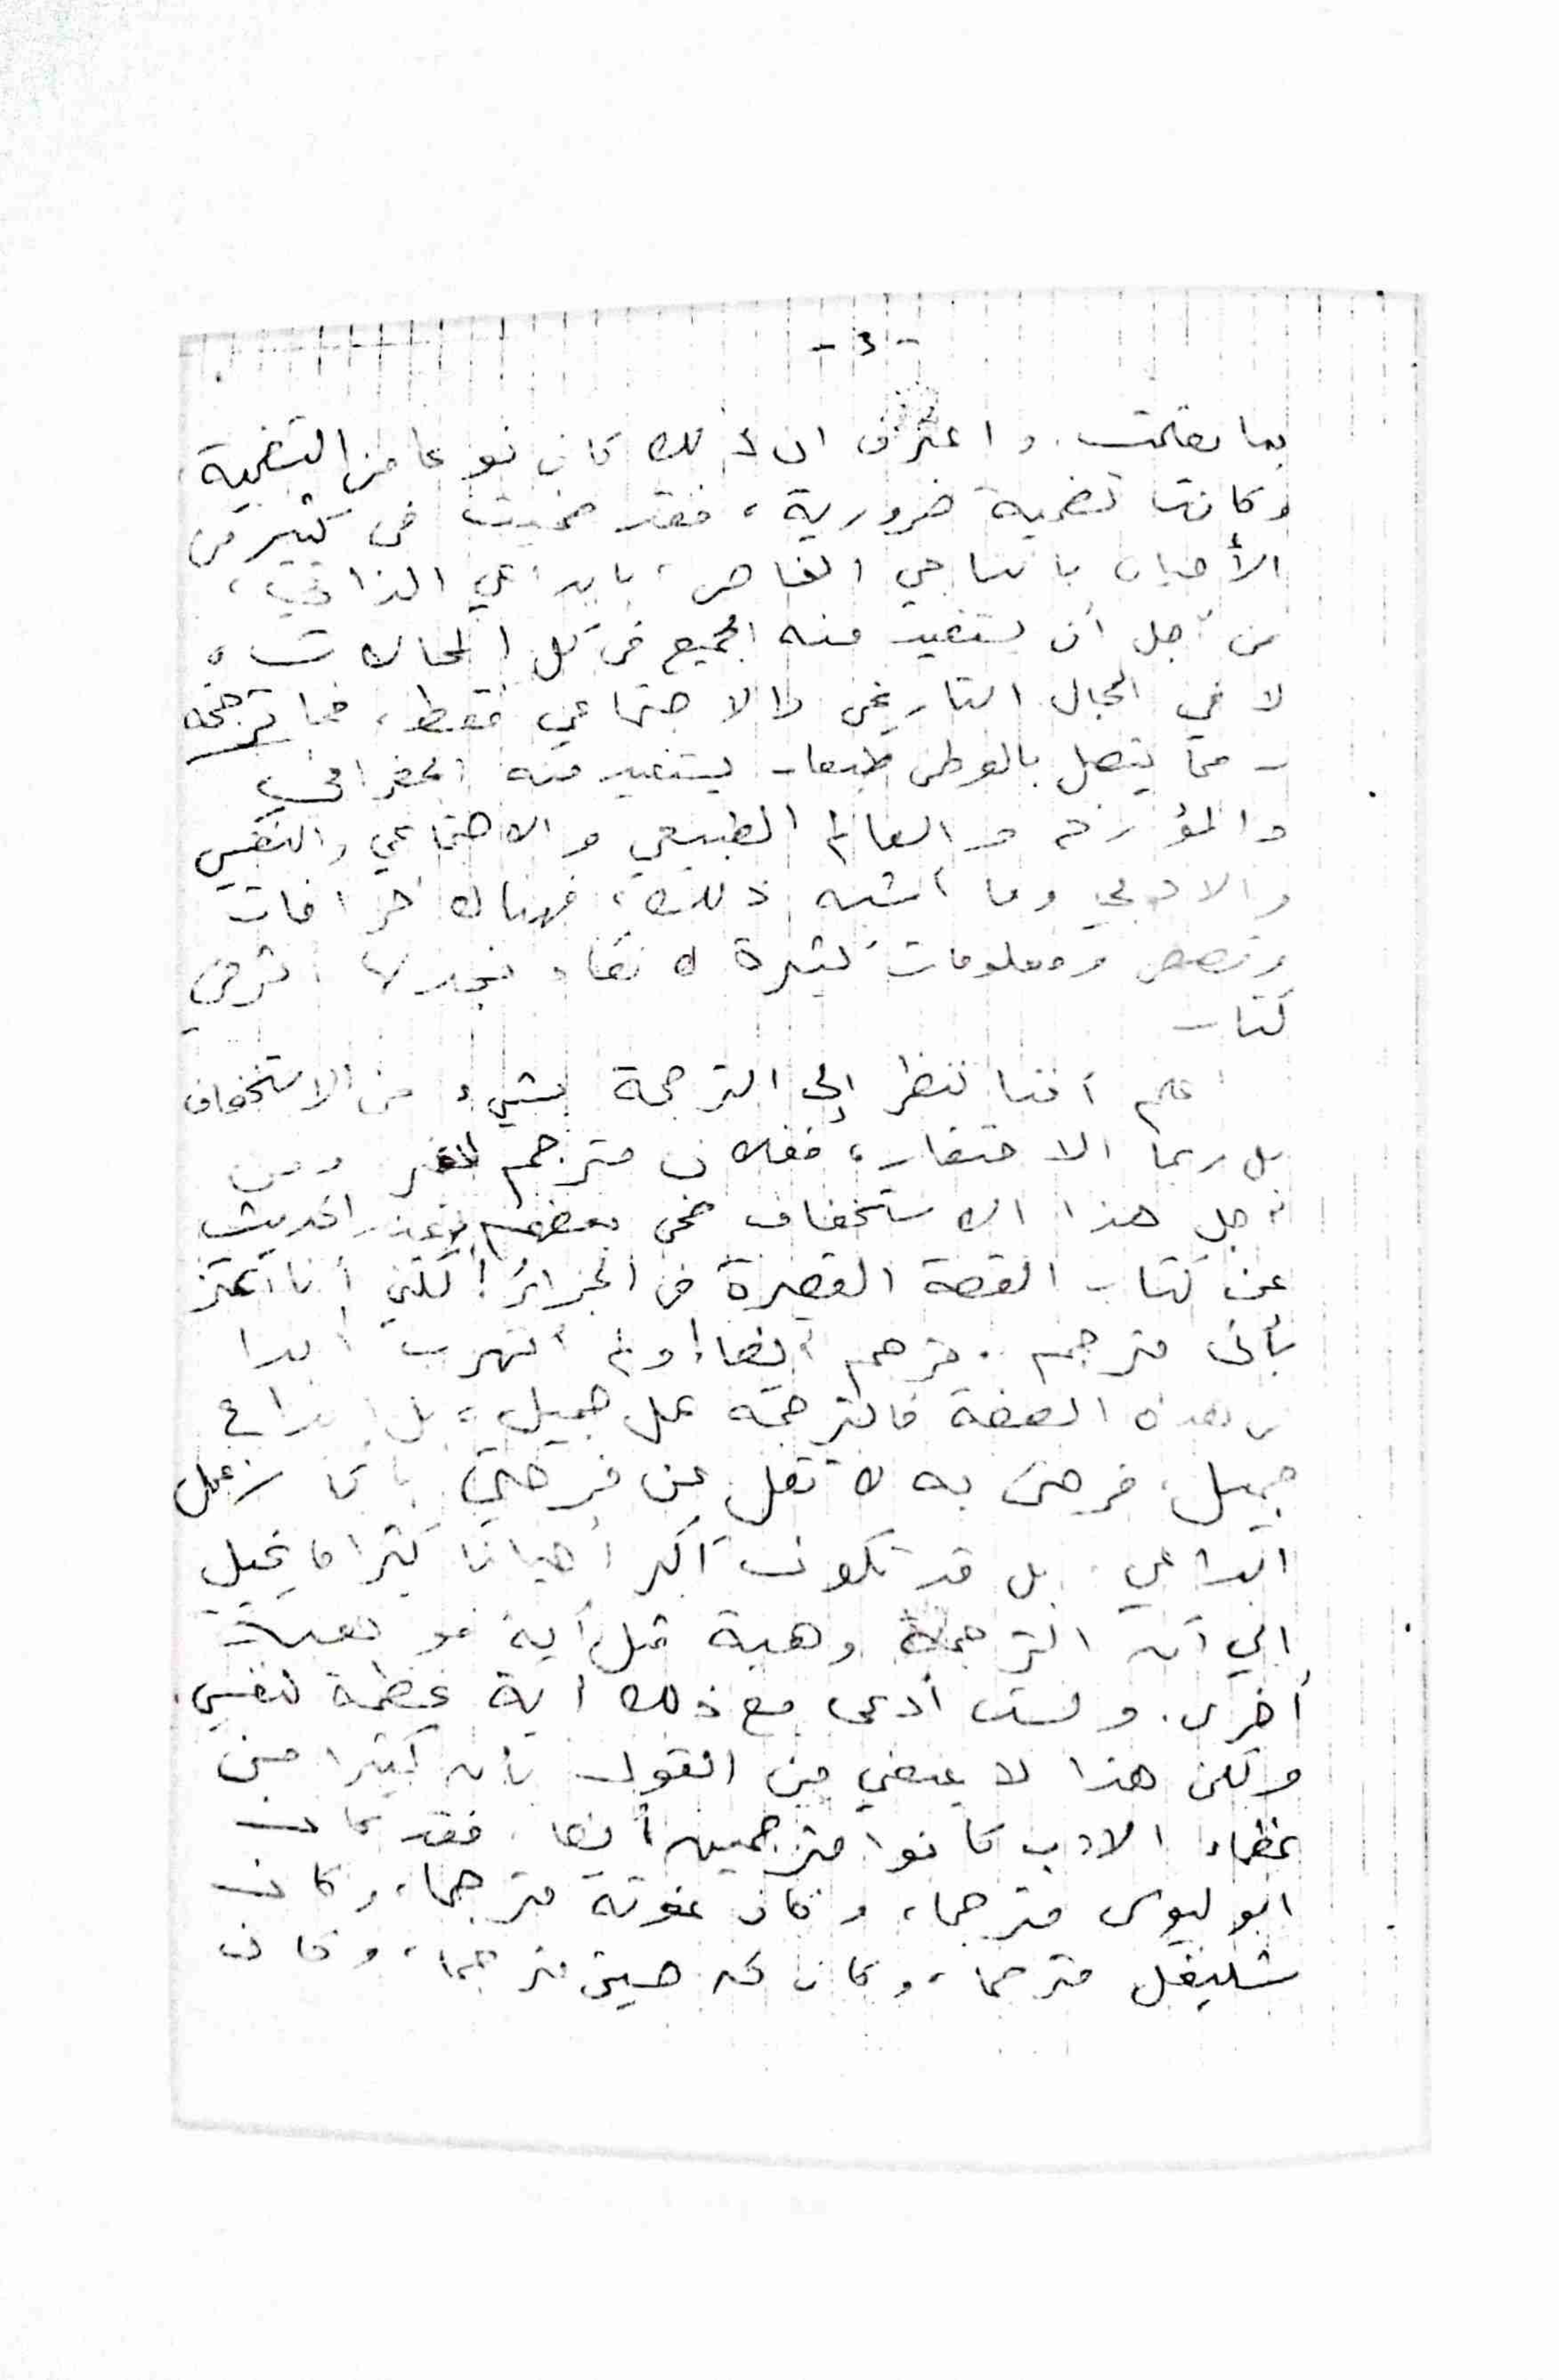 -3-
بما تعلمت. واعترف ان ذلك كان نوعا من التضحية
وكانت تضحية ضرورية، فقد ضحيت في كثير من
الأحيان بانتاجي الخاص، بابداعي الذاتي،
من أجل أن يستفيد منه الجميع في كل المجالات،
لا في المجال التاريخي والاجتماعي فقط، فما ترجمته
- مما يتصل بالوطن طبعا - يستفيد منه الجغرافي
والمؤرخ والعالم الطبيعي والاجتماعي والنفسي
والادبي وما أشبه ذلك، فهناك خرافات
وقصص ومعلومات كثيرة لا نكاد نجد لها أثرا في
كتاب
اعلم أننا ننظر إلى الترجمة بشيء من الاستخفاف
بل ربما الاحتقار، ففلان مترجم لا غير ومن
أجل هذا الاستخفاف نحى بعضهم عند الحديث
عن كتاب القصة القصيرة في الجزائر! لكني أنا أعتز
بأني مترجم.. مترجم أيضا! ولم أتهرب أبدا
من هذه الصفة فالترجمة عمل جميل، بل ابداع
جميل، فرحتي به لا تقل عن فرحتي بأي عمل
ابداعي. بل قد تكون أكبر أحيانا كثيرا ما يخيل
الي أن الترجمة وهبة مثل أية موهبة
أخرى. ولست أدعى مع ذلك أية عظمة لنفسي.
ولكن هذا لا يمنعني من القول بأن كثيرا من
عظماء الادب كانوا مترجمين أيضا. فقد كان
ابوليوس مترجما، وكان غوته مترجما، وكان
شليغل مترجما، وكان طه حسين مترجما، وكان